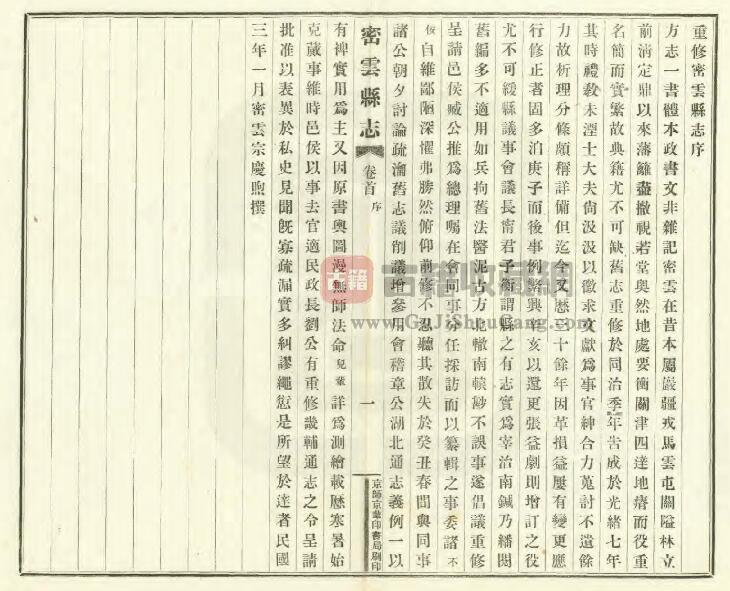 重修密雲縣志序
方志一書體本政書文非雜記密雲在昔本屬巖疆戎馬雲屯關隘林立
前淸定鼎以來藩籬盡撤視若堂奧然地處要衝關津四達地瘠而役重
名簡而實繁故典籍尤不可缺舊志重修於同治季年告成於光緒七年
其時禮敎未湮士大夫尙汲汲以徵求文獻爲事官紳合力蒐討不遺餘
力故析理分條頗稱詳備但迄今又歷三十餘年因革損益屢有變更應
行修正者固多泊庚子而後事例繁興辛亥以還更張益劇則增訂之役
尤不可緩縣議事會議長甯君子衡謂縣之有志實爲宰治南鍼乃繙閱
舊編多不適用如兵拘舊法醫泥古方北轍南轅尠不誤事遂倡議重修
呈請邑侯臧公推爲總理囑在會同事分任採訪而以纂輯之事委諸不
佞自維鄙陋深懼弗勝然俯仰前修不忍聽其散失於癸丑春間與同事
諸公朝夕討論疏瀹舊志議削議增參用會稽章公湖北通志義例一以
密雲縣志
卷首
序
一
京師京華印書局刷印
有裨實用爲主又因原書輿圖漫無師法命兒輩詳爲測繪載歷寒暑始
克蕆事維時邑侯以事去官適民政長劉公有重修畿輔通志之令呈請
批准以表異於私史見聞旣寡疏漏實多糾謬繩愆是所望於達者民國
三年一月密雲宗慶煦撰
古籍收藏網
www.GuJiShouCang.com
古籍